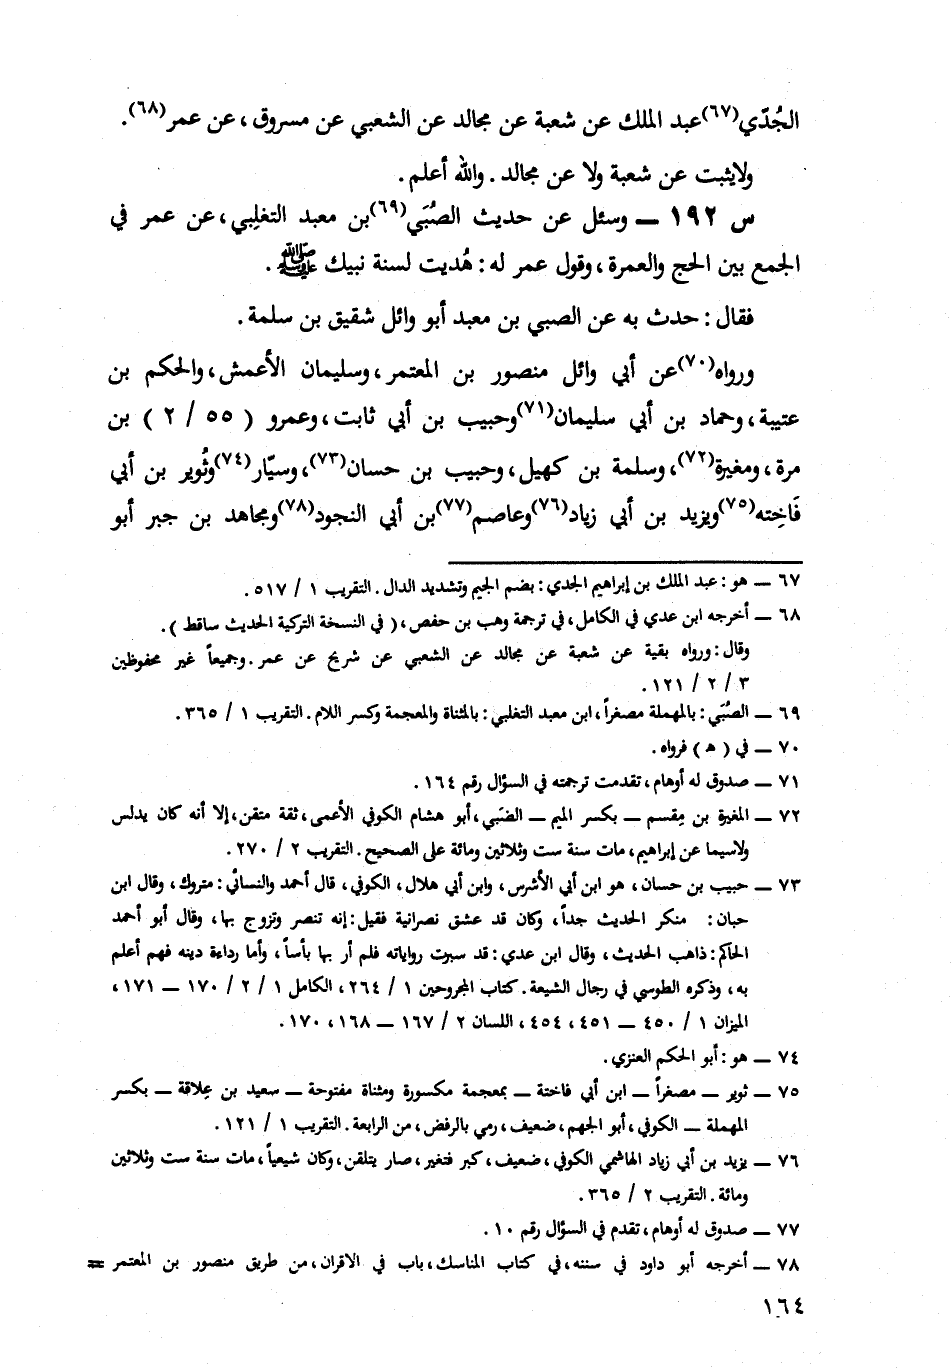 الجُدّي(٦٧)عبد الملك عن شعبة عن مجالد عن الشعبي عن مسروق ، عن عمر(٦٨).
ولايثبت عن شعبة ولا عن مجالد . والله أعلم .
س ١٩٢ ــ وسئل عن حديث الصُبَي(٦٩)بن معبد التغلِبي ، عن عمر في
الجمع بين الحج والعمرة ، وقول عمر له : هُديت لسنة نبيك ﷺ .
فقال : حدث به عن الصبي بن معبد أبو وائل شقيق بن سلمة .
ورواه(٧٠)عن أبي وائل منصور بن المعتمر ، وسليمان الأعمش ، والحكم بن
عتيبة ، وحماد بن أبي سليمان(٧١)وحبيب بن أبي ثابت ، وعمرو ( ٥٥ / ٢ ) بن
مرة ، ومغيرة(٧٢)، وسلمة بن كهيل ، وحبيب بن حسان(٧٣)، وسيّار(٧٤)وثُوير بن أبي
فَاخِته(٧٥)ويزيد بن أبي زياد(٧٦)وعاصم(٧٧)بن أبي النجود(٧٨)ومجاهد بن جبر أبو
٦٧ ــ هو : عبد الملك بن إبراهيم الجدي : بضم الجيم وتشديد الدال . التقريب ١ / ٥١٧ .
٦٨ ــ أخرجه ابن عدي في الكامل ، في ترجمة وهب بن حفص ، ( في النسخة التركية الحديث ساقط ) .
وقال : ورواه بقية عن شعبة عن مجالد عن الشعبي عن شريح عن عمر . وجميعاً غير محفوظين
٣ / ٢ / ١٢١ .
٦٩ ــ الصُبَي : بالمهملة مصغراً ، ابن معبد التغلبي : بالمثناة والمعجمة وكسر اللام . التقريب ١ / ٣٦٥ .
٧٠ ــ في ( ﻫ ) فرواه .
٧١ ــ صدوق له أوهام ، تقدمت ترجمته في السؤال رقم ١٦٤ .
٧٢ ــ المغيرة بن مِقسم ــ بكسر الميم ــ الضَبي ، أبو هشام الكوفي الأعمى ، ثقة متقن ، إلا أنه كان يدلس
ولاسيما عن إبراهيم ، مات سنة ست وثلاثين ومائة على الصحيح . التقريب ٢ / ٢٧٠ .
٧٣ ــ حبيب بن حسان ، هو ابن أبي الأشرس ، وابن أبي هلال ، الكوفي ، قال أحمد والنسائي : متروك ، وقال ابن
حبان : منكر الحديث جداً ، وكان قد عشق نصرانية فقيل : إنه تنصر وتزوج بها ، وقال أبو أحمد
الحاكم : ذاهب الحديث ، وقال ابن عدي : قد سبرت رواياته فلم أر بها بأساً ، وأما رداءة دينه فهم أعلم
به ، وذكره الطوسي في رجال الشيعة . كتاب المجروحين ١ / ٢٦٤ ، الكامل ١ / ٢ / ١٧٠ ــ ١٧١ ،
الميزان ١ / ٤٥٠ ــ ٤٥١ ، ٤٥٤ ، اللسان ٢ / ١٦٧ ــ ١٦٨ ، ١٧٠ .
٧٤ ــ هو : أبو الحكم العنزي .
٧٥ ــ ثوير ــ مصغراً ــ ابن أبي فاختة ــ بمعجمة مكسورة ومثناة مفتوحة ــ سعيد بن عِلاقة ــ بكسر
المهملة ــ الكوفي ، أبو الجهم ، ضعيف ، رمي بالرفض ، من الرابعة . التقريب ١ / ١٢١ .
٧٦ ــ يزيد بن أبي زياد الهاشمي الكوفي ، ضعيف ، كبر فتغير ، صار يتلقن ، وكان شيعياً ، مات سنة ست وثلاثين
ومائة . التقريب ٢ / ٣٦٥ .
٧٧ ــ صدوق له أوهام ، تقدم في السؤال رقم ١٠ .
٧٨ ــ أخرجه أبو داود في سننه ، في كتاب المناسك ، باب في الاقران ، من طريق منصور بن المعتمر =
١٦٤